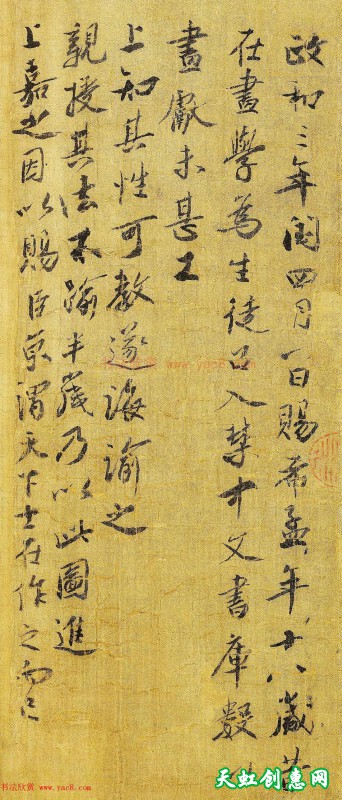 政和三年閏四月一日賜希孟年十八歲昔
在畫學為生徒召入禁中文書庫數以
畫獻未甚工
上知其性可教遂誨諭之
親授其法不踰半歲乃以此圖進
上嘉之因以賜臣京謂天下士在作之而已
书法欣赏 www.yac8.com
天虹创惠网